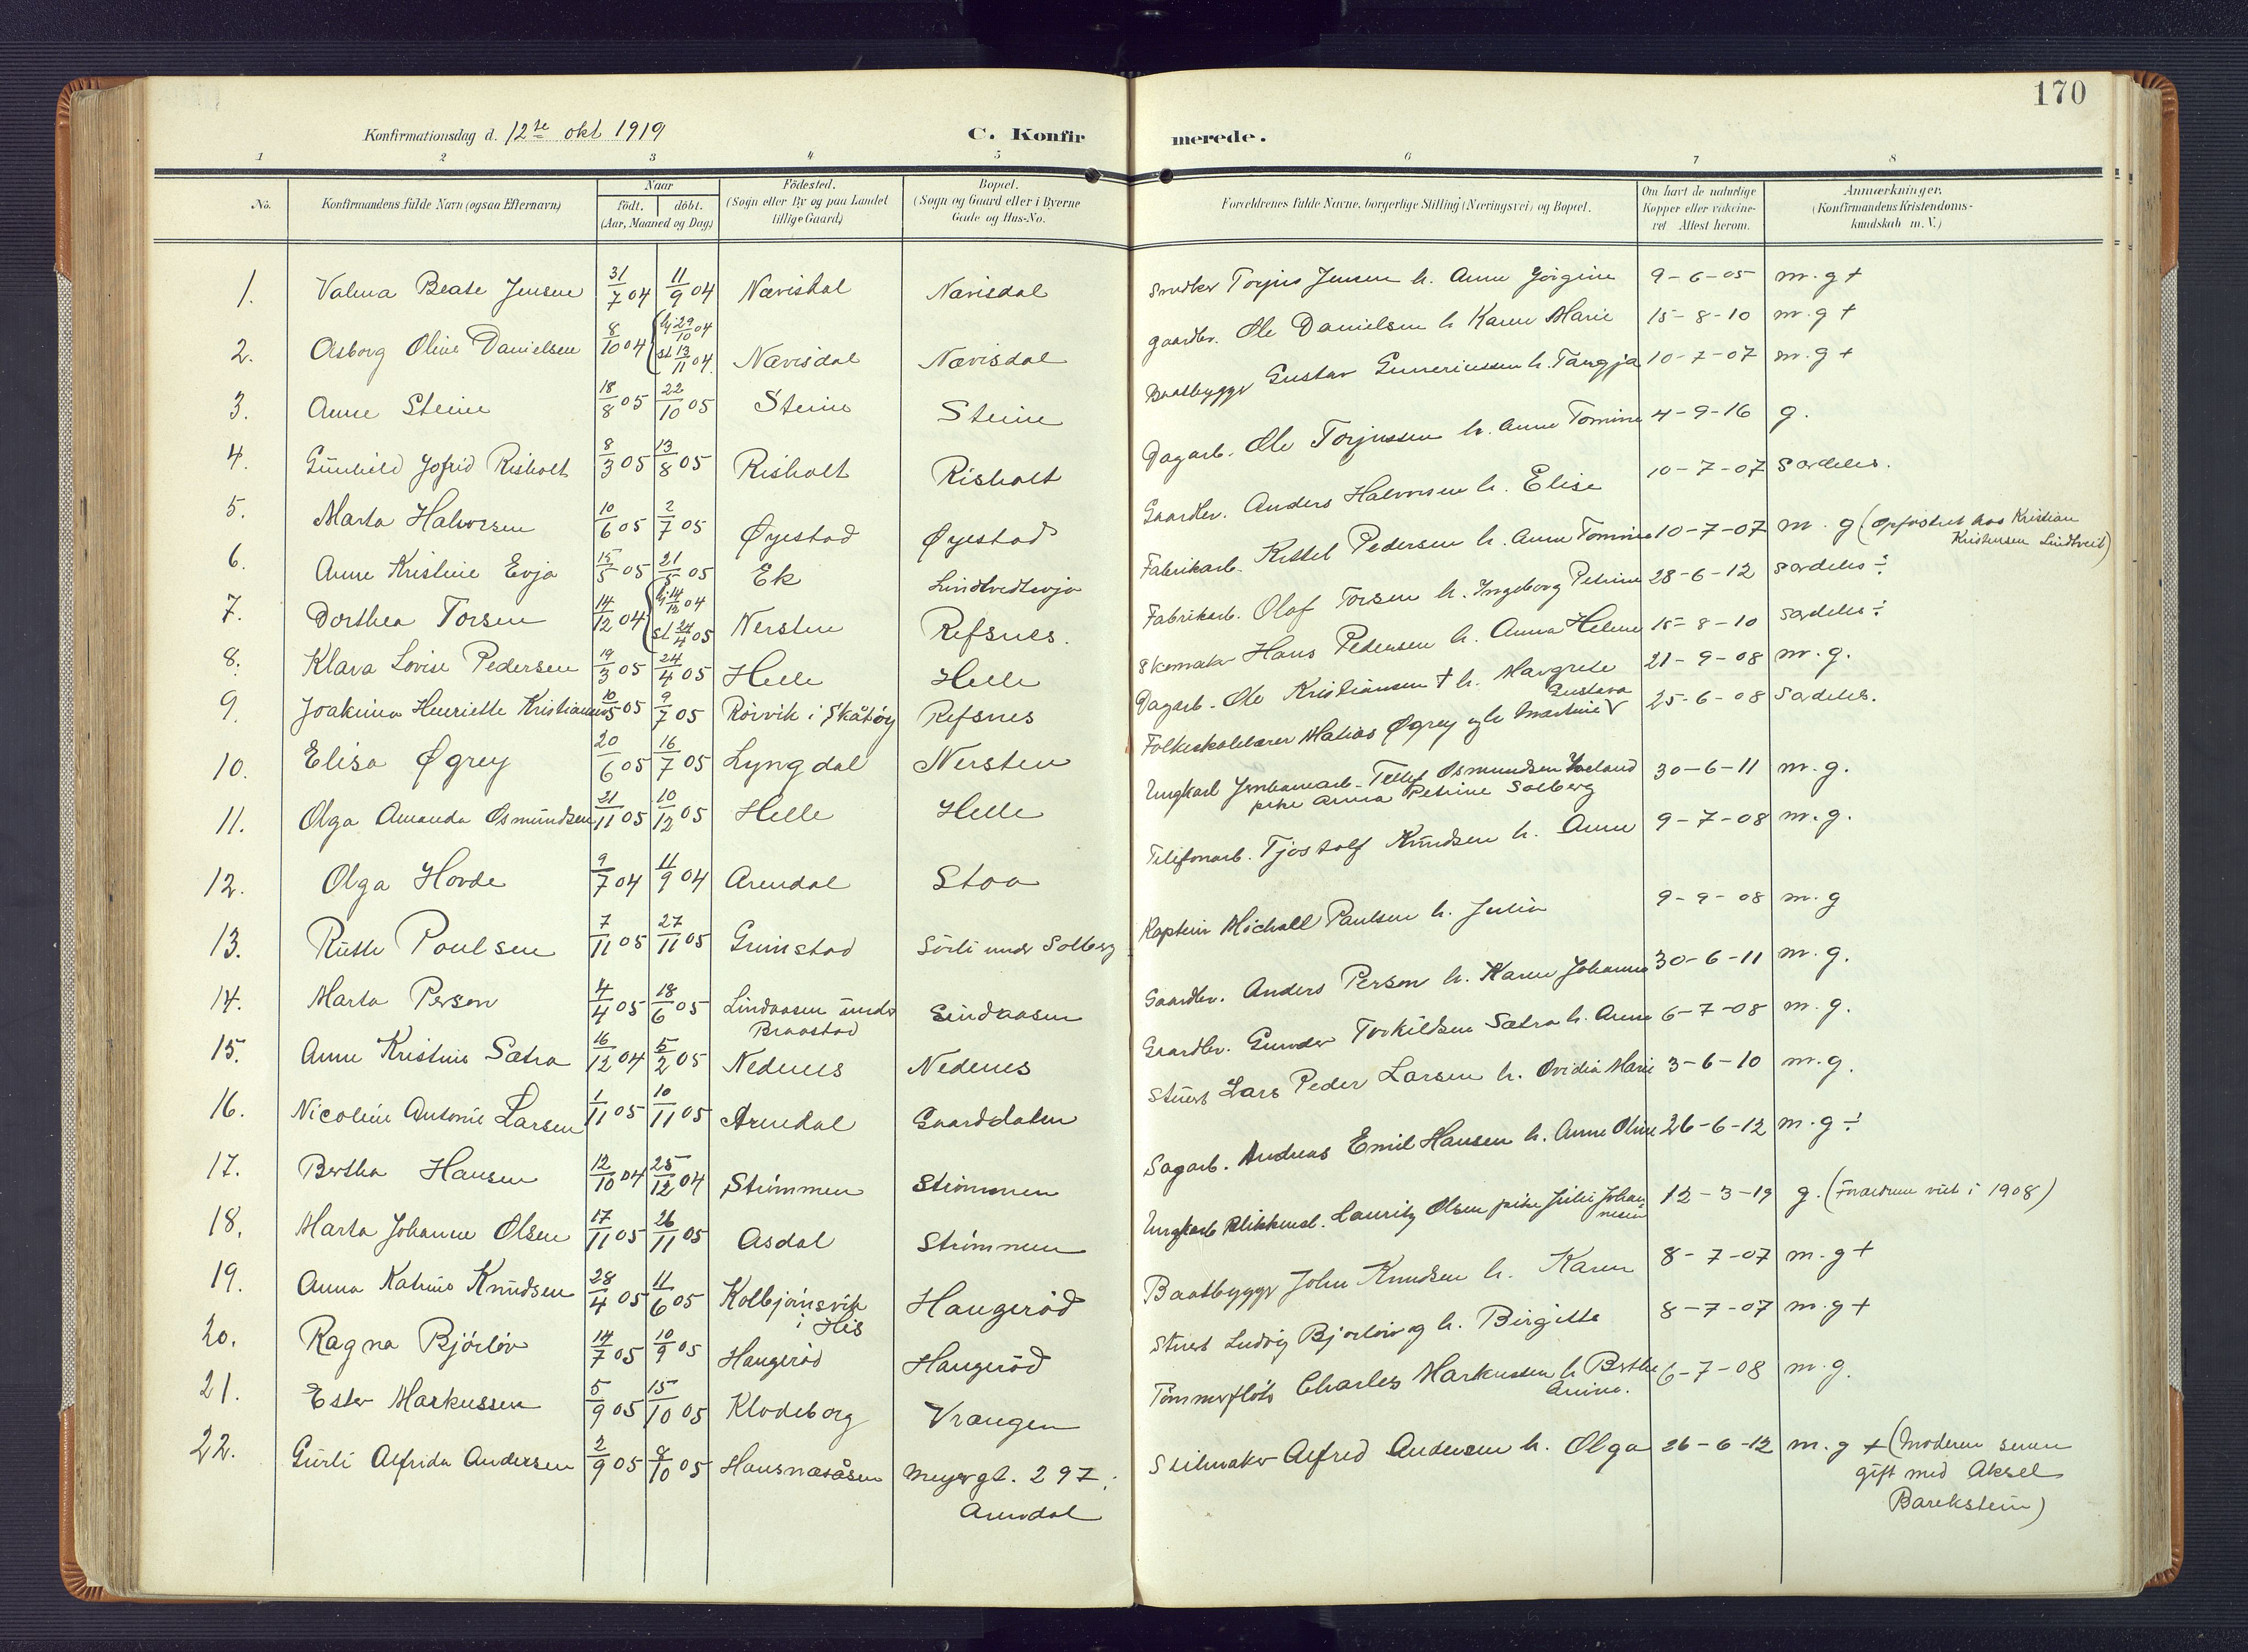 170
Konfirmationsdag d. 12te okt 1919 C. Konfirmerede.
1 2 3 4 5 6 7 8
No. Konfirmandens fulde Navn (ogsaa Efternavn) Naar født. døbt. (Aar, Maaned og Dag) Fødested. (Sogn eller By og paa Landet tillige Gaard) Bopæl. (Sogn og Gaard eller i Byerne Gade og Hus-No. Forældrenes fulde Navne, borgerlige Stilling (Næringsvei) og Bopæl. Om havt de naturlige Kopper eller vakcineret Attest herom. Anmærkninger. (Konfirmandens Kristendomskundskab m. V.)
1. Valma Beate Jensen 31/7 04 11/9 04 Nævisdal Nævisdal Snedker Torjus Jensen h. Anne Jörgine 9-6-05 m.g +
2. Asborg Oline Danielsen 8/10 04 hj 29/10 04 st 13/11 04 Nævisdal Nævisdal gaardbr. Ole Danielsen h Karen Marie 15-8-10 m.g +
3. Anne Steine 18/8 05 22/10 05 Steine Steine Baatbygger Gustav Guneriussen h. Tangja 10-7-07 m.g +
4. Gunhild Jofrid Risholt 8/3 05 13/8 05 Risholt Risholt Dagarb. Ole Torjussen h. Anne Tomine 4-9-16 g.
5. Marta Halvorsen 10/6 05 2/7 05 Øyestad Øyestad Gaardbr. Anders Halvorsen h. Elise 10-7-07 Særdeles.
6. Anne Kristine Evja 15/5 05 21/5 05 Ek Lindtvedtevja Fabrikarb. Kittel Pedersen h. Anne Tomine 10-7-07 m.g (Opfostret hos Kristian
Kristensen Lindtveit)
7. Dorthea Torsen 14/12 04 hj 14/12 04 st 24/4 05 Nersten Refsnes. Fabrikarb. Olaf Torsen h. Ingeborg Petrine 28-6-12 Særdeles ÷
8. Klara Lovise Pedersen 19/3 05 24/4 05 Helle Helle Skomaker Hans Pedersen h. Anna Helene 15-8-10 Særdeles ÷
9. Joakima Henriette Kristiansen 10/5 05 9/7 05 Rørvik i Skåtøy Refsnes Dagarb. Ole Kristiansen † h. Margrete 21-9-08 m.g.
10. Elisa Øgrey 20/6 05 16/7 05 Lyngdal Nersten Folkeskolelærer Matias Øgrey og h Martine Gustava 25-6-08 Særdeles.
11. Olga Amanda Osmundsen 21/11 05 10/12 05 Helle Helle Ungkarl Jernbanearb. Tellef Osmundsen
pike Anna Petrine Solberg 30-6-11 m.g.
12. Olga Hovde 9/7 04 11/9 04 Arendal Stoa Telefonarb. Tjostolf Knudsen h. Anne 9-7-08 m.g.
13. Ruth Poulsen 7/11 05 27/11 05 Grimstad Sörli under Solberg Kaptein Michall Paulsen h. Julie 9-9-08 m.g
14. Marta Person 4/4 05 18/6 05 Lindaasen under
Braastad Lindaasen Gaardbr. Anders Person h. Karen Johanne 30-6-11 m.g.
15. Anne Kristine Sætra 16/12 04 5/2 05 Nedenes Nedenes Gaardbr. Gunder Torkildsen Sætra h. Anne 6-7-08 m.g.
16. Nicoline Antonie Larsen 1/11 05 10/11 05 Arendal Gaarddalen Stuert Lars Peder Larsen h. Ovidia Marie 3-6-10 m.g.
17. Bertha Hansen 12/10 04 25/12 04 Strömmen Strömmen Sagarb. Andreas Emil Hansen h. Anne Oline 26-6-12 m.g ÷
18. Marta Johanne Olsen 17/11 05 26/11 05 Asdal Strömmen Ungkarl Blikkensl. Lauritz Olsen pike Julie Johannesen 12-3-19 g. (Forældrene viet i 1908)
19. Anna Katrine Knudsen 28/4 05 11/6 05 Kolbjönsvik
i His Haugeröd Baatbygger John Knudsen h. Karen 8-7-07 m.g +
20. Ragna Bjørløv 14/7 05 10/9 05 Haugeröd Haugeröd Stuert Ludvig Bjorløv og h. Birgitte 8-7-07 m.g +
21. Ester Markussen 5/9 05 15/10 05 Klodeborg Vrangen Tømmerfløter Charles Markussen h Berthe
Anine. 6-7-08 m.g.
22. Gurli Alfrida Andersen 2/9 05 8/10 05 Hausnæsåsen Meyergt. 297.
Arendal Seilmaker Alfred Andersen h. Olga 26-6-12 m.g + (Moderen senere
gift med Aksel
Barekstein)